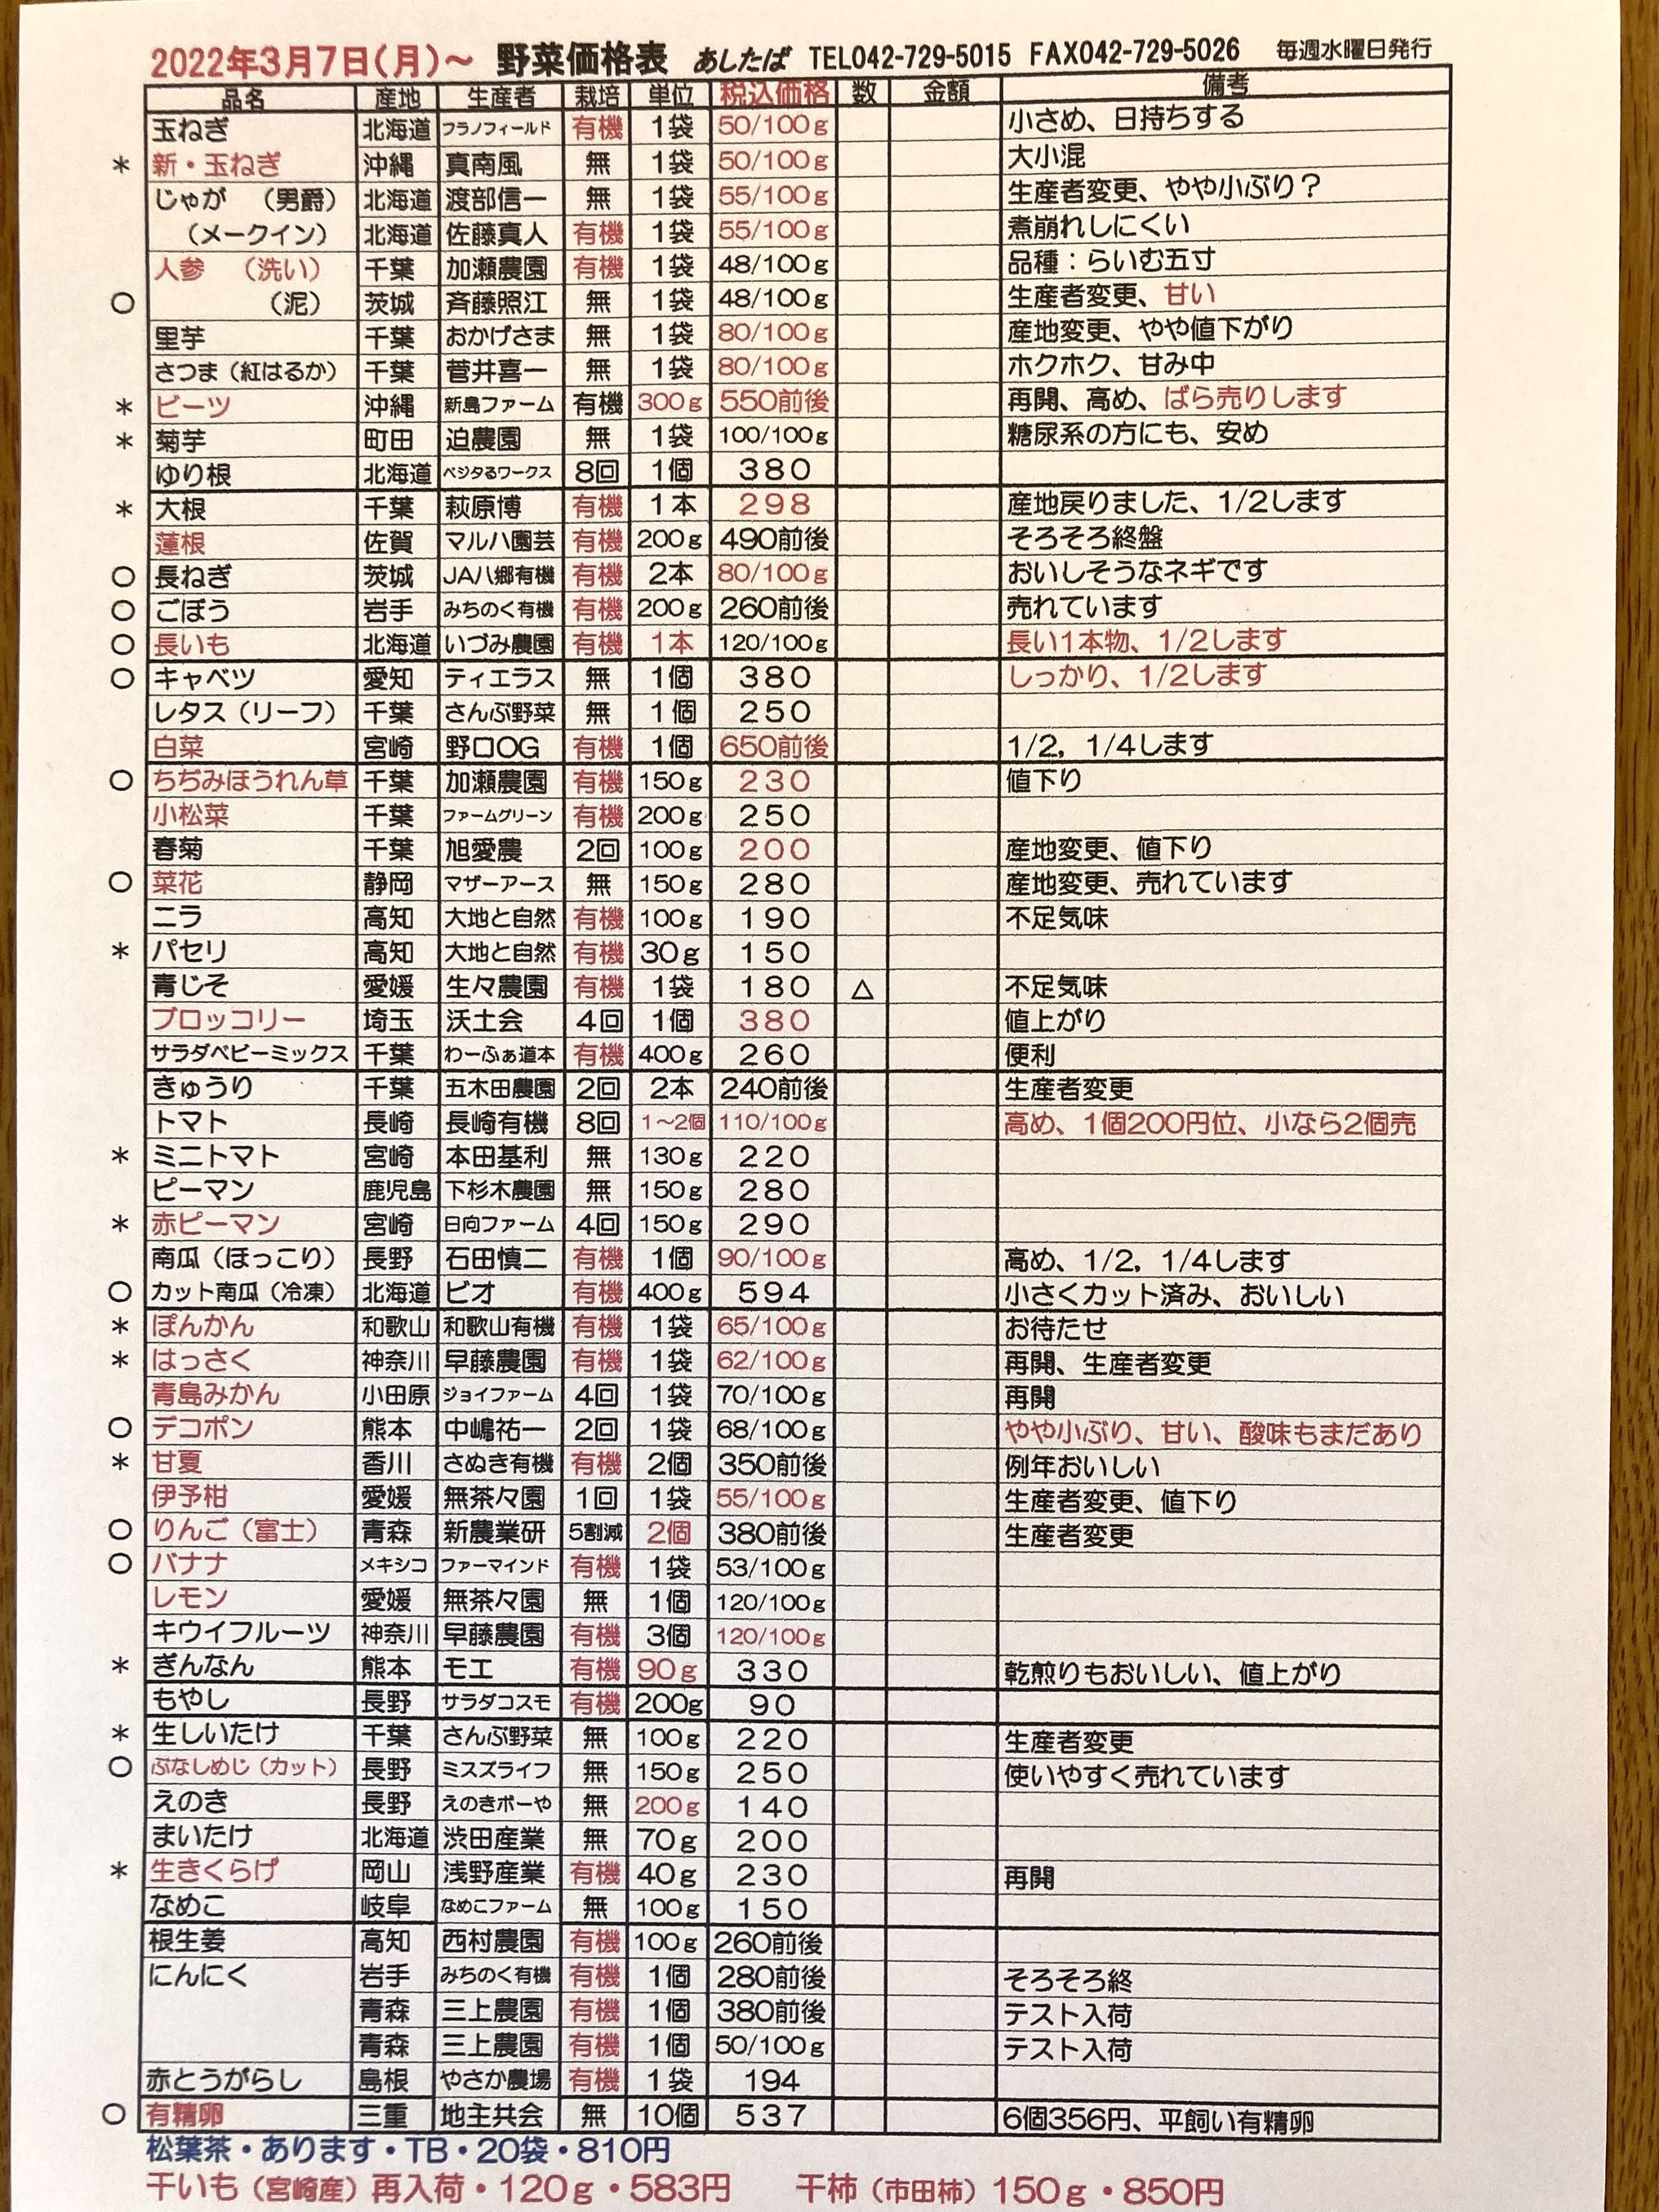 2022年3月7日(月)～ 野菜価格表 あしたば TEL042-729-5015 FAX042-729-5026 毎週水曜日発行
品名 産地 生産者 栽培 単位 税込価格 数 金額 備考
玉ねぎ 北海道 フラノフィールド 有機 1袋 50/100g 小さめ、日持ちする
＊ 新・玉ねぎ 沖縄 真南風 無 1袋 50/100g 大小混
じゃが （男爵） 北海道 渡部信一 無 1袋 55/100g 生産者変更、やや小ぶり？
（メークイン） 北海道 佐藤真人 有機 1袋 55/100g 煮崩れしにくい
人参 （洗い） 千葉 加瀬農園 有機 1袋 48/100g 品種：らいむ五寸
○ （泥） 茨城 斉藤照江 無 1袋 48/100g 生産者変更、甘い
里芋 千葉 おかげさま 無 1袋 80/100g 産地変更、やや値下がり
さつま（紅はるか） 千葉 菅井喜一 無 1袋 80/100g ホクホク、甘み中
＊ ビーツ 沖縄 新島ファーム 有機 300g 550前後 再開、高め、ばら売りします
＊ 菊芋 町田 迫農園 無 1袋 100/100g 糖尿系の方にも、安め
ゆり根 北海道 ベジタるワークス 8回 1個 380
＊ 大根 千葉 萩原博 有機 1本 298 産地戻りました、1/2します
蓮根 佐賀 マルハ園芸 有機 200g 490前後 そろそろ終盤
○ 長ねぎ 茨城 JA八郷有機 有機 2本 80/100g おいしそうなネギです
○ ごぼう 岩手 みちのく有機 有機 200g 260前後 売れています
○ 長いも 北海道 いづみ農園 有機 1本 120/100g 長い1本物、1/2します
○ キャベツ 愛知 ティエラス 無 1個 380 しっかり、1/2します
レタス（リーフ） 千葉 さんぶ野菜 無 1個 250
白菜 宮崎 野口OG 有機 1個 650前後 1/2，1/4します
○ ちぢみほうれん草 千葉 加瀬農園 有機 150g 230 値下り
小松菜 千葉 ファームグリーン 有機 200g 250
春菊 千葉 旭愛農 2回 100g 200 産地変更、値下り
○ 菜花 静岡 マザーアース 無 150g 280 産地変更、売れています
ニラ 高知 大地と自然 有機 100g 190 不足気味
＊ パセリ 高知 大地と自然 有機 30g 150
青じそ 愛媛 生々農園 有機 1袋 180 △ 不足気味
ブロッコリー 埼玉 沃土会 4回 1個 380 値上がり
サラダベビーミックス 千葉 わーふぁ道本 有機 400g 260 便利
きゅうり 千葉 五木田農園 2回 2本 240前後 生産者変更
トマト 長崎 長崎有機 8回 1～2個 110/100g 高め、1個200円位、小なら2個売
＊ ミニトマト 宮崎 本田基利 無 130g 220
ピーマン 鹿児島 下杉木農園 無 150g 280
＊ 赤ピーマン 宮崎 日向ファーム 4回 150g 290
南瓜（ほっこり） 長野 石田慎二 有機 1個 90/100g 高め、1/2，1/4します
○ カット南瓜（冷凍） 北海道 ビオ 有機 400g 594 小さくカット済み、おいしい
＊ ぽんかん 和歌山 和歌山有機 有機 1袋 65/100g お待たせ
＊ はっさく 神奈川 早藤農園 有機 1袋 62/100g 再開、生産者変更
青島みかん 小田原 ジョイファーム 4回 1袋 70/100g 再開
○ デコポン 熊本 中嶋祐一 2回 1袋 68/100g やや小ぶり、甘い、酸味もまだあり
＊ 甘夏 香川 さぬき有機 有機 2個 350前後 例年おいしい
伊予柑 愛媛 無茶々園 1回 1袋 55/100g 生産者変更、値下り
○ りんご（富士） 青森 新農業研 5割減 2個 380前後 生産者変更
○ バナナ メキシコ ファーマインド 有機 1袋 53/100g
レモン 愛媛 無茶々園 無 1個 120/100g
キウイフルーツ 神奈川 早藤農園 有機 3個 120/100g
＊ ぎんなん 熊本 モエ 有機 90g 330 乾煎りもおいしい、値上がり
もやし 長野 サラダコスモ 有機 200g 90
＊ 生しいたけ 千葉 さんぶ野菜 無 100g 220 生産者変更
○ ぶなしめじ（カット） 長野 ミスズライフ 無 150g 250 使いやすく売れています
えのき 長野 えのきボーや 無 200g 140
まいたけ 北海道 渋田産業 無 70g 200
＊ 生きくらげ 岡山 浅野産業 有機 40g 230 再開
なめこ 岐阜 なめこファーム 無 100g 150
根生姜 高知 西村農園 有機 100g 260前後
にんにく 岩手 みちのく有機 有機 1個 280前後 そろそろ終
青森 三上農園 有機 1個 380前後 テスト入荷
青森 三上農園 有機 1個 50/100g テスト入荷
赤とうがらし 島根 やさか農場 有機 1袋 194
○ 有精卵 三重 地主共会 無 10個 537 6個356円、平飼い有精卵
松葉茶・あります・TB・20袋・810円
干いも（宮崎産）再入荷・120g・583円 干柿（市田柿）150g・850円